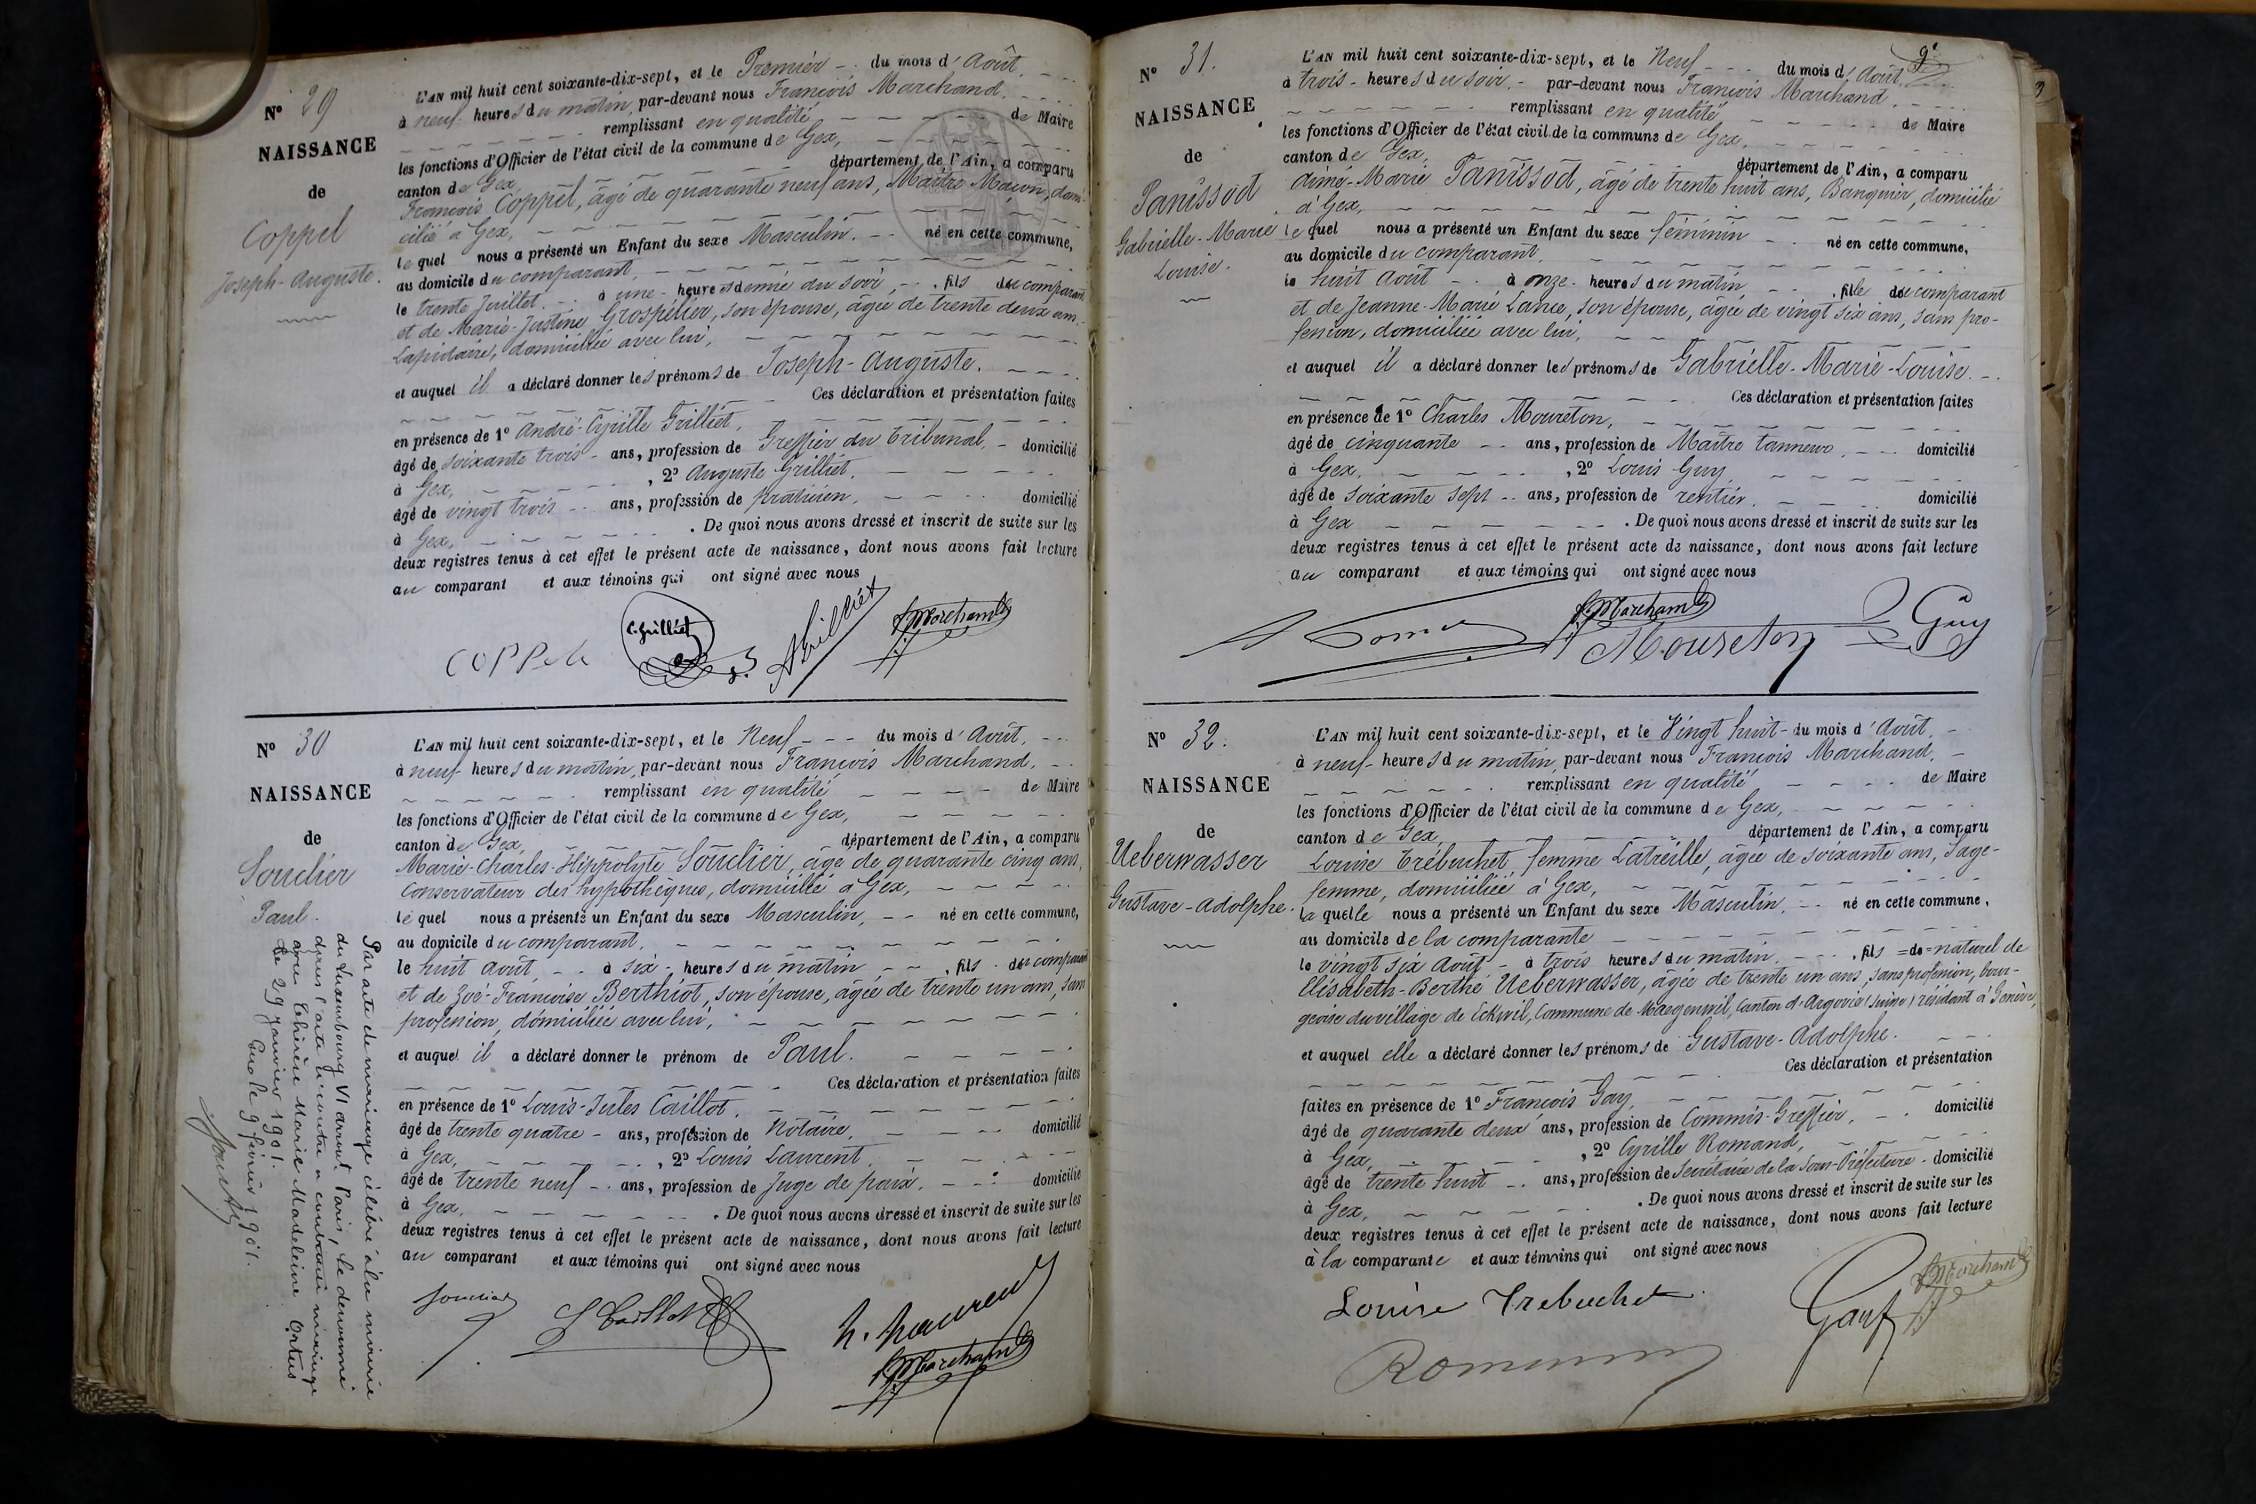 N° 29
NAISSANCE
de
Coppel
Joseph-Auguste.
L'AN mil huit cent soixante-dix-sept, et le Premier du mois d'Août.
à neuf heures du matin par-devant nous François Marchand.
remplissant en qualité de Maire
les fonctions d'Officier de l'état civil de la commune de Gex,
canton de Gex, département de l'Ain, a comparu
François Coppel, âgé de quarante neuf ans, Maître Maçon, domi-
cilié à Gex,
lequel nous a présenté un Enfant du sexe Masculin. né en cette commune,
au domicile du comparant,
le trente Juillet à une heure et demie du soir, fils du comparant
et de Marie-Justine Grospélier, son épouse, âgée de trente deux ans,
Lapidaire, domiciliée avec lui,
et auquel il a déclaré donner les prénoms de Joseph-Auguste.
Ces déclaration et présentation faites
en présence de 1° André-Cyrille Grilliet,
âgé de soixante trois ans, profession de Greffier du tribunal, domicilié
à Gex, , 2° Auguste Grilliet,
âgé de vingt trois ans, profession de praticien, domicilié
à Gex, . De quoi nous avons dressé et inscrit de suite sur les
deux registres tenus à cet effet le présent acte de naissance, dont nous avons fait lecture
au comparant et aux témoins qui ont signé avec nous
COPPel C. Grilliet A Grilliet F. Marchand
N° 30
NAISSANCE
de
Souclier
Paul.
L'AN mil huit cent soixante-dix-sept, et le Neuf du mois d'Août.
à neuf heures du matin par-devant nous François Marchand.
remplissant en qualité de Maire
les fonctions d'Officier de l'état civil de la commune de Gex,
canton de Gex, département de l'Ain, a comparu
Marie-Charles-Hippolyte Souclier, âgé de quarante cinq ans,
Conservateur des hypothèques, domicilié à Gex,
lequel nous a présenté un Enfant du sexe Masculin, né en cette commune,
au domicile du comparant.
le huit Août à six heures du matin, fils du comparant
et de Zoé-Françoise Berthiot, son épouse, âgée de trente un ans, sans
profession, domiciliée avec lui,
et auquel il a déclaré donner le prénom de Paul.
Ces déclaration et présentation faites
en présence de 1° Louis-Jules Caillot.
âgé de trente quatre ans, profession de Notaire, domicilié
à Gex, , 2° Louis Laurent
âgé de trente neuf ans, profession de Juge de paix. domicilié
à Gex, . De quoi nous avons dressé et inscrit de suite sur les
deux registres tenus à cet effet le présent acte de naissance, dont nous avons fait lecture
au comparant et aux témoins qui ont signé avec nous
Souclier J Caillot L. Laurent
F. Marchand
Par acte de mariage célébré à la mairie
du Luxembourg VI arrond. Paris, le dénommé
dans l'acte ci-contre a contracté mariage
avec Thérèse Marie Madeleine
le 29 janvier 1901.
Gex le 9 février 1901.
N° 31.
NAISSANCE
de
Panissod
Gabrielle-Marie
Louise.
9e
L'AN mil huit cent soixante-dix-sept, et le Neuf du mois d'Août,
à trois heures du soir par-devant nous François Marchand.
remplissant en qualité de Maire
les fonctions d'Officier de l'état civil de la commune de Gex,
canton de Gex, département de l'Ain, a comparu
Aimé-Marie Panissod, âgé de trente huit ans, Banquier, domicilié
à Gex,
lequel nous a présenté un Enfant du sexe féminin né en cette commune,
au domicile du comparant.
le huit Août à onze heures du matin, fille du comparant
et de Jeanne-Marie Lance, son épouse, âgée de vingt six ans, sans pro-
fession, domiciliée avec lui,
et auquel il a déclaré donner les prénoms de Gabrielle-Marie-Louise.
Ces déclaration et présentation faites
en présence de 1° Charles Moureton,
âgé de cinquante ans, profession de Maître tanneur, domicilié
à Gex, , 2° Louis Guy
âgé de soixante sept ans, profession de rentier. domicilié
à Gex . De quoi nous avons dressé et inscrit de suite sur les
deux registres tenus à cet effet le présent acte de naissance, dont nous avons fait lecture
au comparant et aux témoins qui ont signé avec nous
F. Marchand Moureton Guy
N° 32.
NAISSANCE
de
Ueberwasser
Gustave-Adolphe.
L'AN mil huit cent soixante-dix-sept, et le Vingt huit du mois d'Août,
à neuf heures du matin, par-devant nous François Marchand,
remplissant en qualité de Maire
les fonctions d'Officier de l'état civil de la commune de Gex,
canton de Gex, département de l'Ain, a comparu
Louise Trébuchet, femme Latreille, âgée de soixante ans, Sage-
femme, domiciliée à Gex,
laquelle nous a présenté un Enfant du sexe Masculin. né en cette commune,
au domicile de la comparante
le vingt six Août à trois heures du matin. fils =de= naturel de
Elisabeth-Berthe Ueberwasser, âgée de trente un ans, sans profession, bour-
geoise du village de Eckwil, Commune de Maegenwil, Canton d'Argovie (Suisse) résidant à Genève,
et auquel elle a déclaré donner les prénoms de Gustave-Adolphe.
Ces déclaration et présentation
faites en présence de 1° François Gay,
âgé de quarante deux ans, profession de Commis-Greffier, domicilié
à Gex, , 2° Cyrille Romand,
âgé de trente huit ans, profession de Secrétaire de la Sous-Préfecture. domicilié
à Gex, . De quoi nous avons dressé et inscrit de suite sur les
deux registres tenus à cet effet le présent acte de naissance, dont nous avons fait lecture
à la comparante et aux témoins qui ont signé avec nous
Louise Trebuchet Gayf F. Marchand
Romand